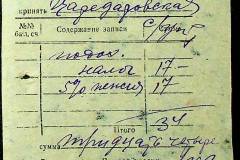 принять Кадедадовская
№№ бал. сч Содержание записи
подох.
налог 17 —
5% пенсия 17
Итого 34
сумма тридцать четыре